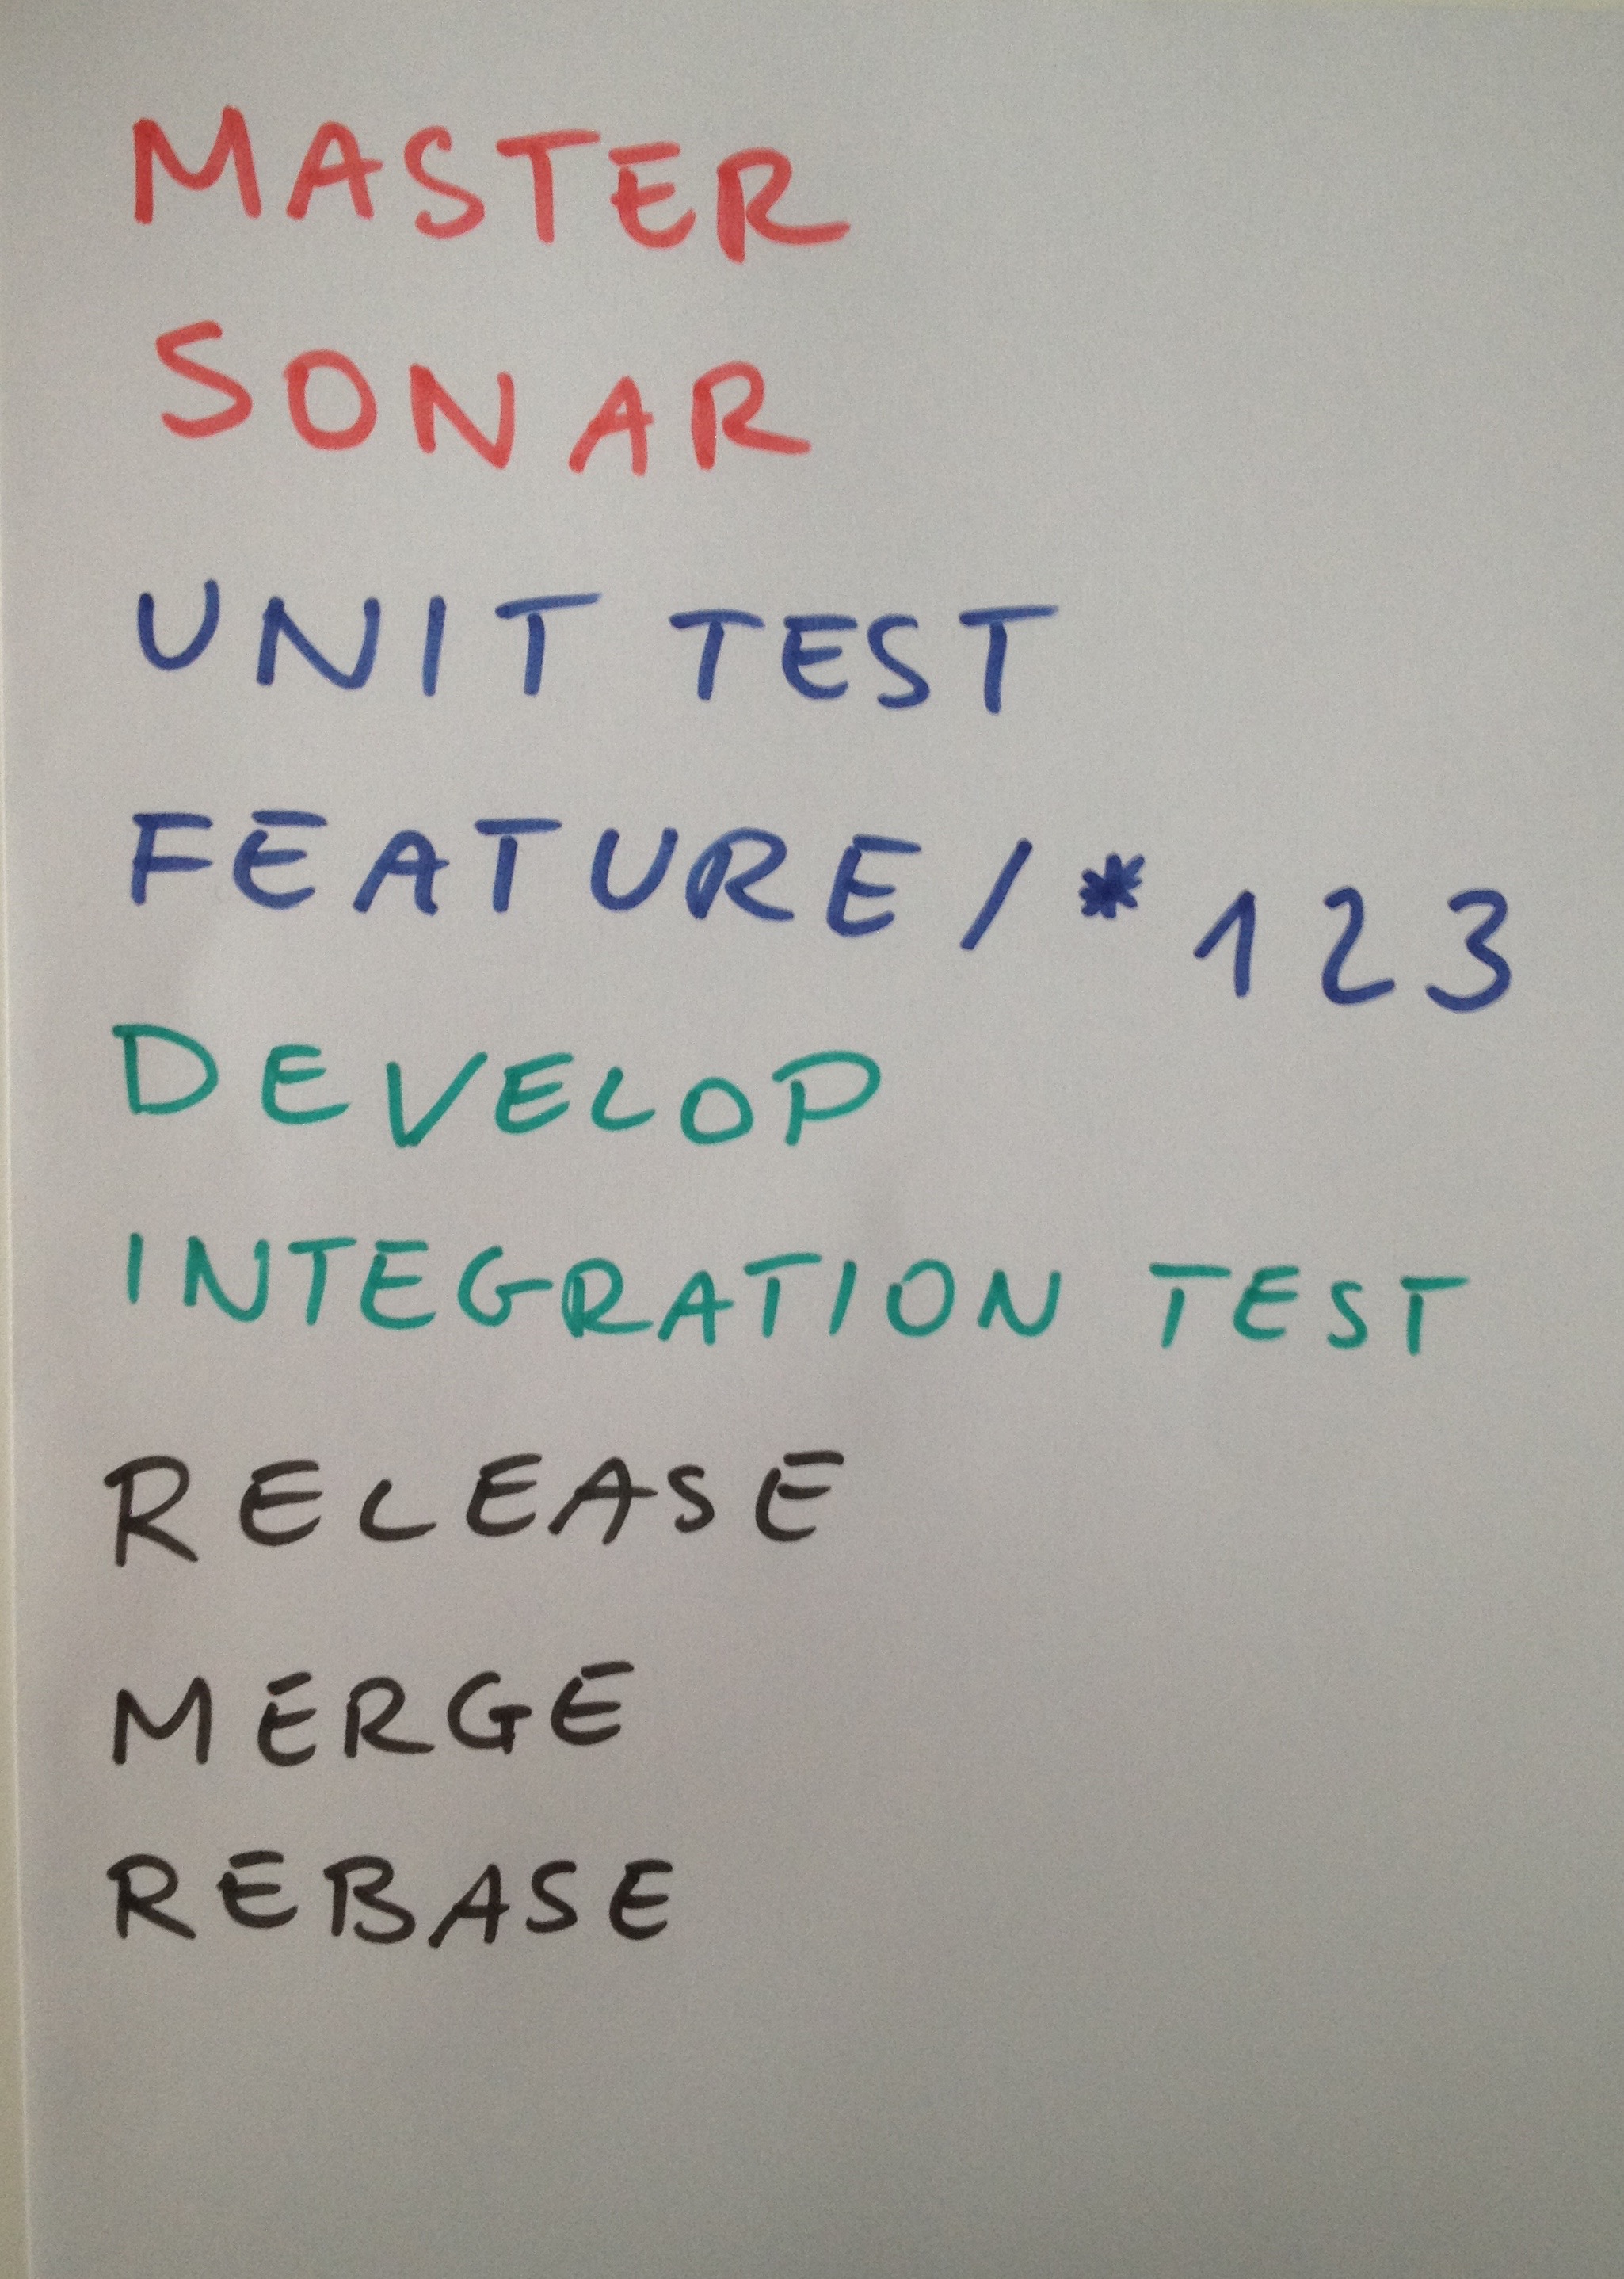 MASTER
SONAR
UNIT TEST
FEATURE/*123
DEVELOP
INTEGRATION TEST
RELEASE
MERGE
REBASE